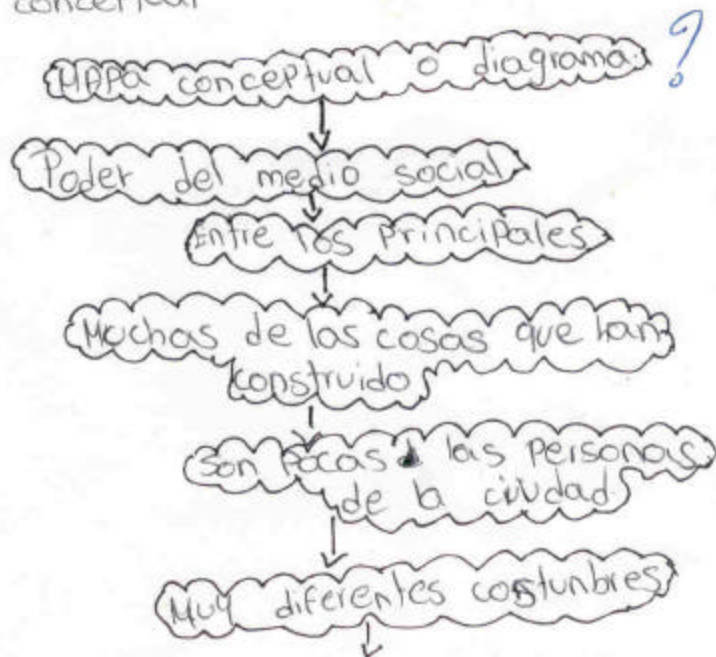 conceptual
MAPa conceptual o diagrama. ?
Poder del medio social
Entre los Principales
Muchas de las cosas que han
construido
Son Pocas las Personas
de la ciudad
Muy diferentes costunbres